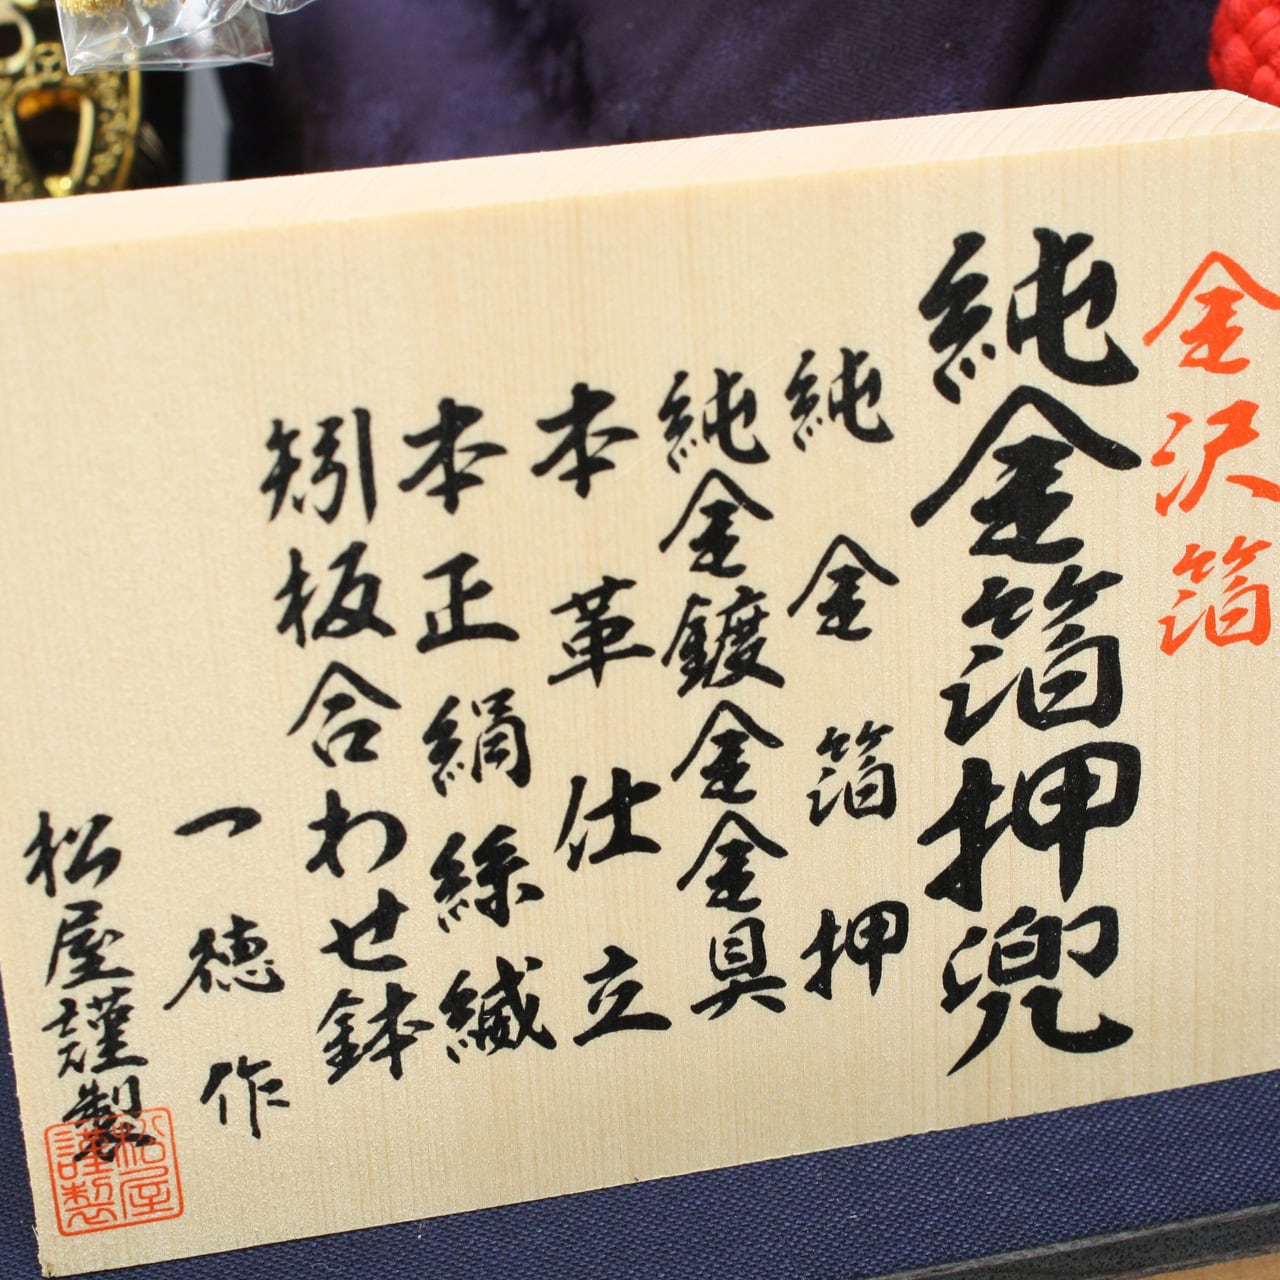 金沢箔
純金箔押兜
純金箔押
純金鍍金金具
本革仕立
本正絹絲縅
矧板合わせ鉢
一徳作
松屋謹製
松屋
謹製